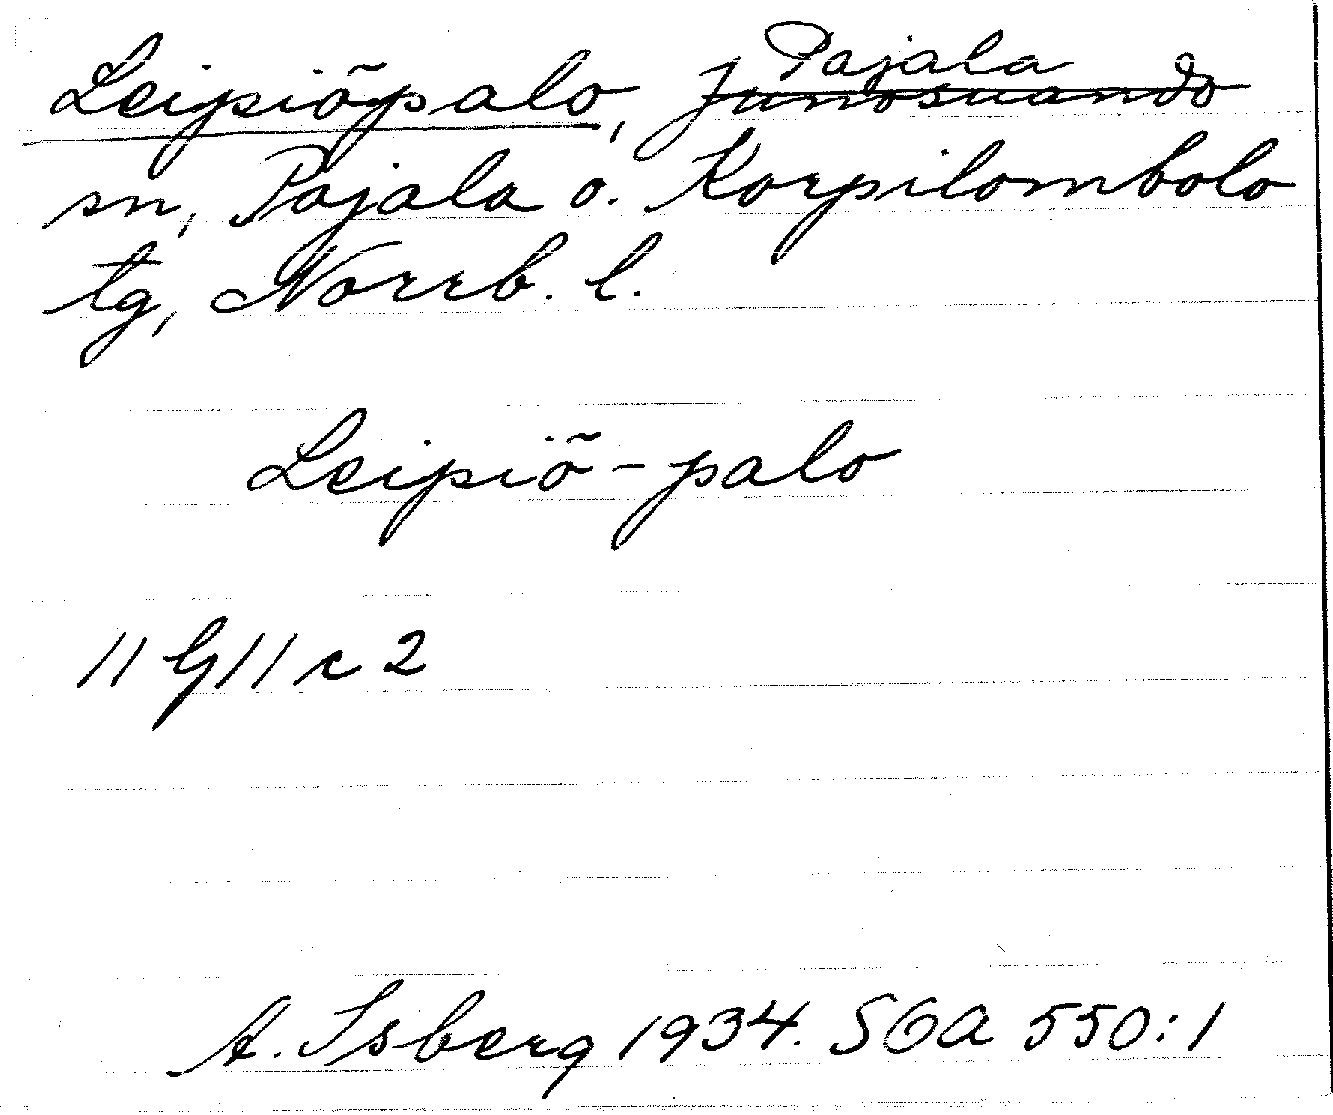 Leipiöpalo, Pajala ~~Junosuando~~
sn, Pajala o. Korpilombolo
tg, Norrb. l.
Leipiö-palo
11 G 11 c 2
A. Isberg 1934. SOA 550:1